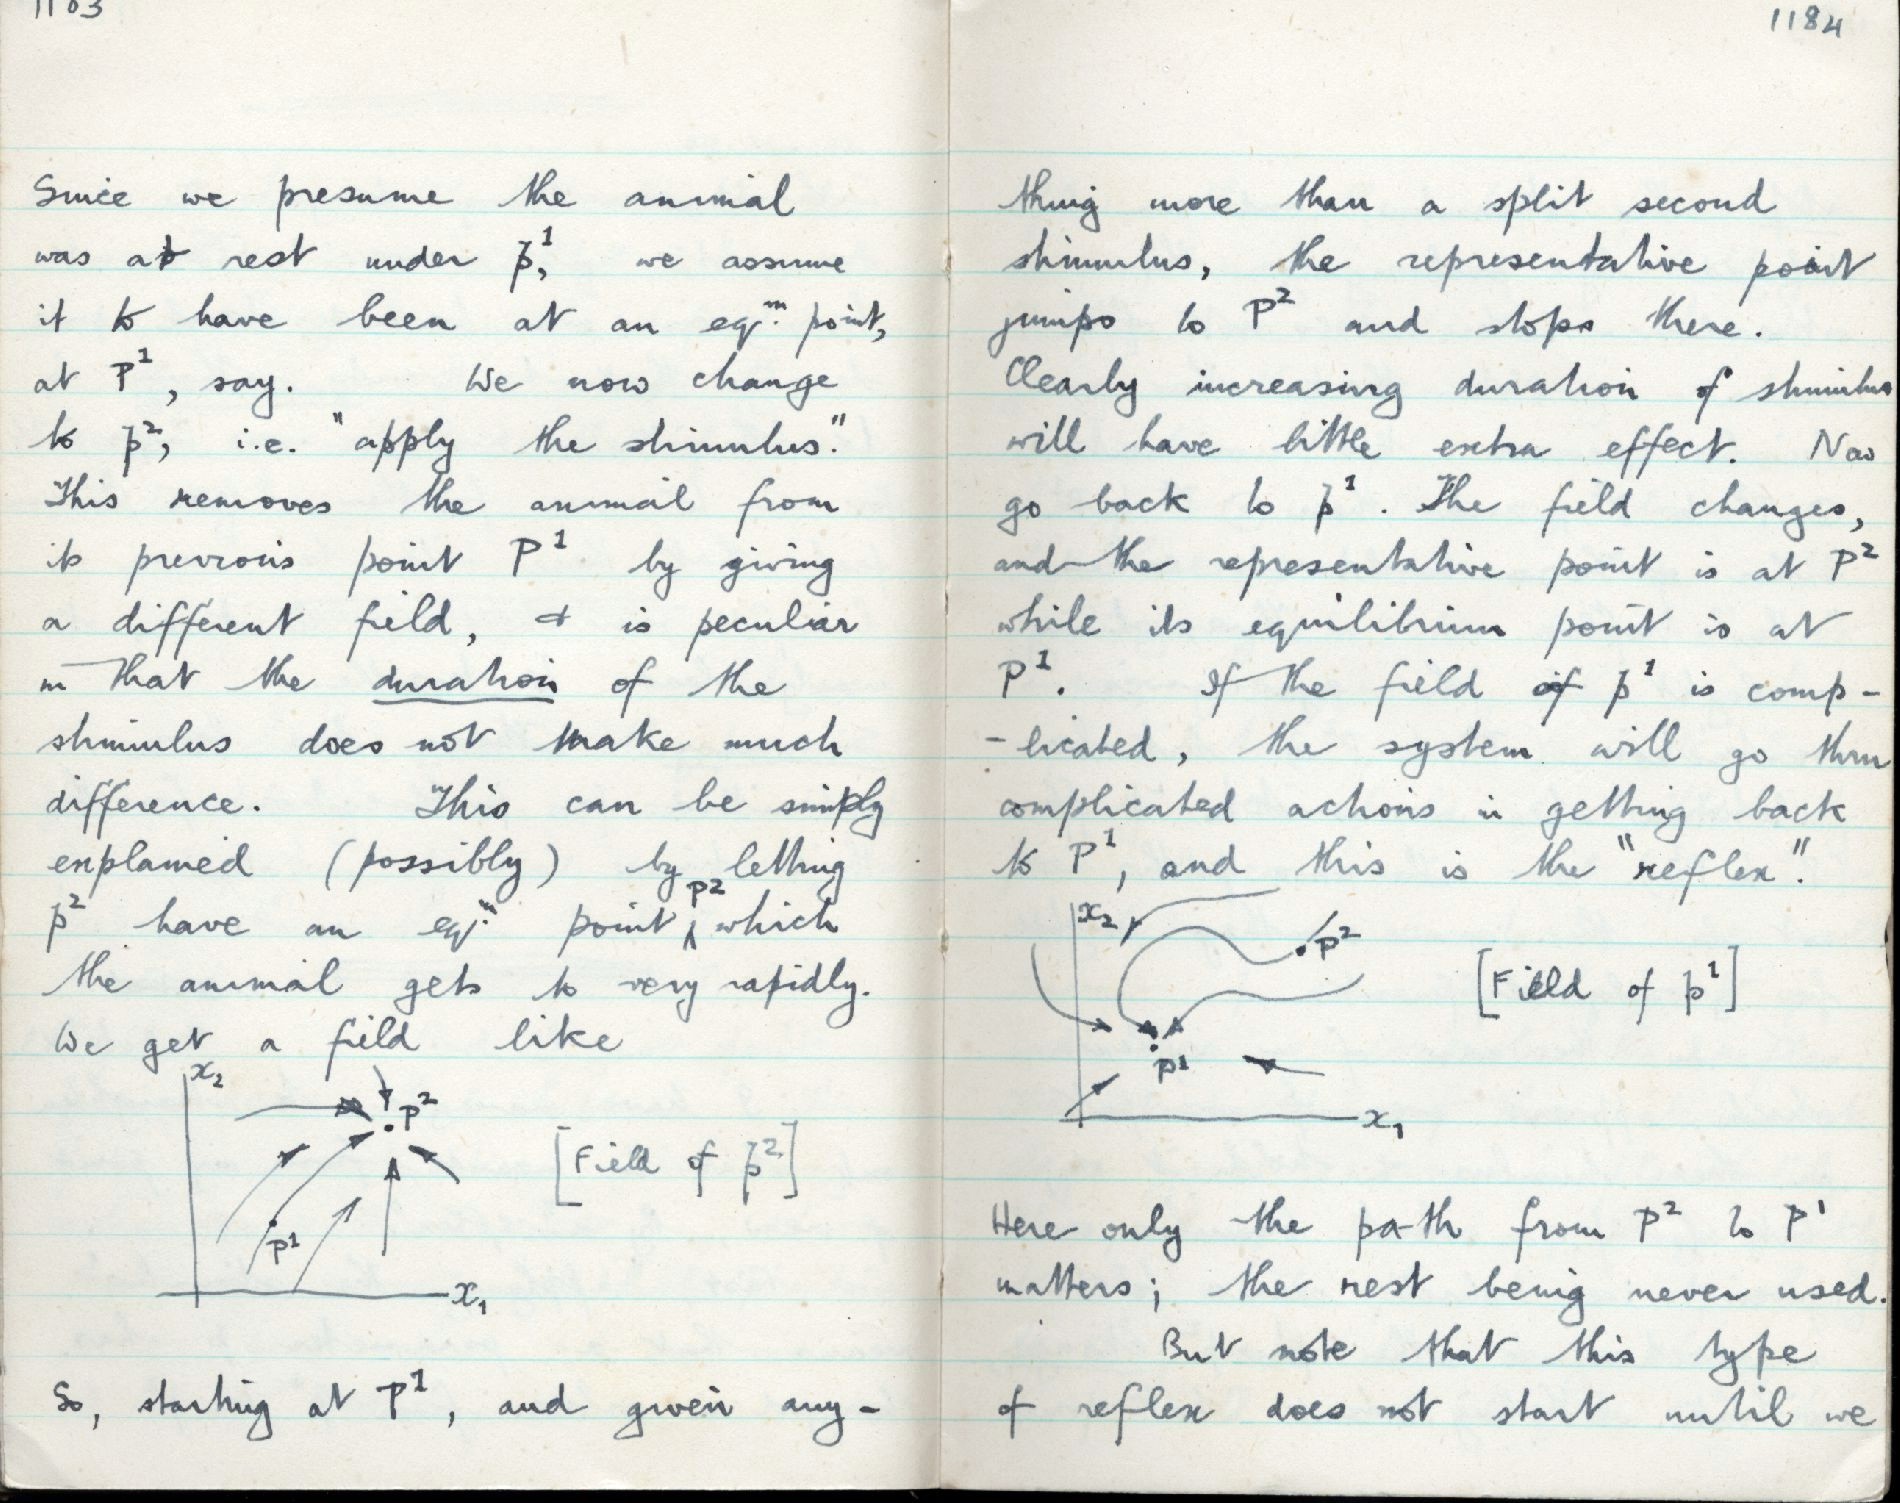 1183
Since we presume the animal
was at rest under p¹, we assume
it to have been at an eqᵐ point,
at P¹, say. We now change
to p², i.e. "apply the stimulus."
This removes the animal from
its previous point P¹ by giving
a different field, & is peculiar
in that the duration of the
stimulus does not make much
difference. This can be simply
explained (possibly) by letting
p² have an eqᵐ point P² which
the animal gets to very rapidly.
We get a field like
x₂
P²
[Field of p²]
P¹
x₁
So, starting at P¹, and given any-
1184
thing more than a split second
stimulus, the representative point
jumps to P² and stops there.
Clearly increasing duration of stimulus
will have little extra effect. Now
go back to p¹. The field changes,
and the representative point is at P²
while its equilibrium point is at
P¹. If the field of p¹ is comp-
-licated, the system will go thru
complicated actions in getting back
to P¹, and this is the "reflex".
x₂
P²
[Field of p¹]
P¹
x₁
Here only the path from P² to P¹
matters; the rest being never used.
But note that this type
of reflex does not start until we